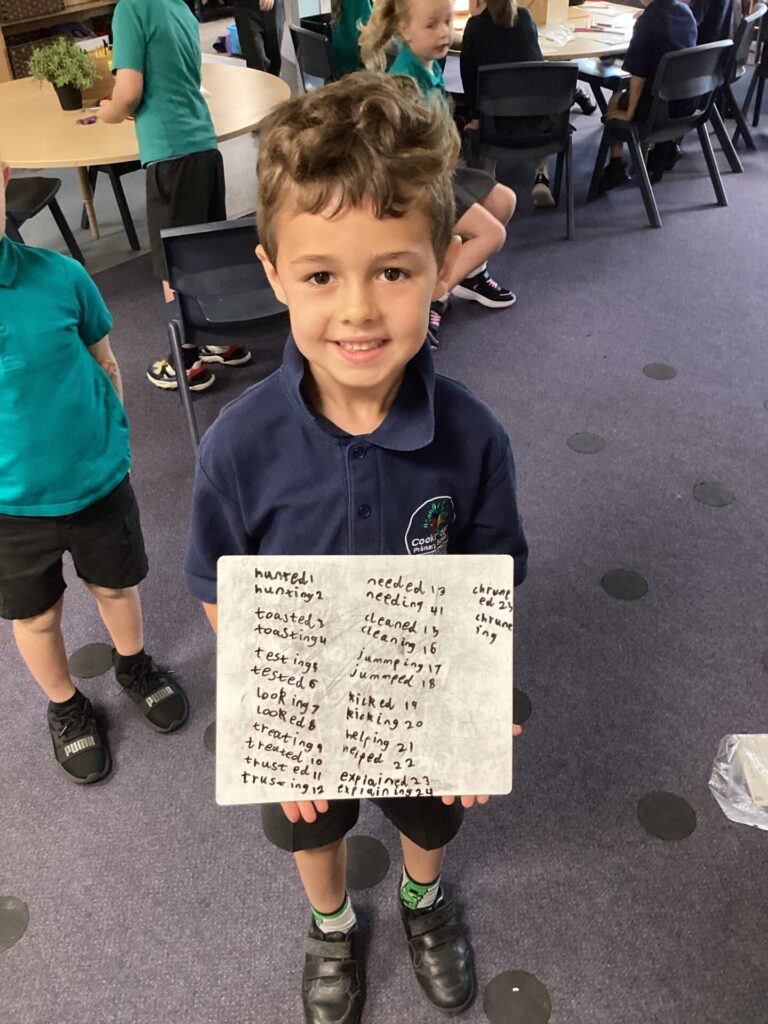 hunted 1
hunting 2
toasted 3
toasting 4
testing 5
tested 6
looking 7
looked 8
treating 9
treated 10
trusted 11
trusting 12
needed 13
needing 41
cleaned 15
cleaning 16
jummping 17
jummped 18
kicked 19
kicking 20
helping 21
helped 22
explained 23
explaining 24
chrunp
ed 25
chrunc
ing
Primary School
PUMA
PUMA